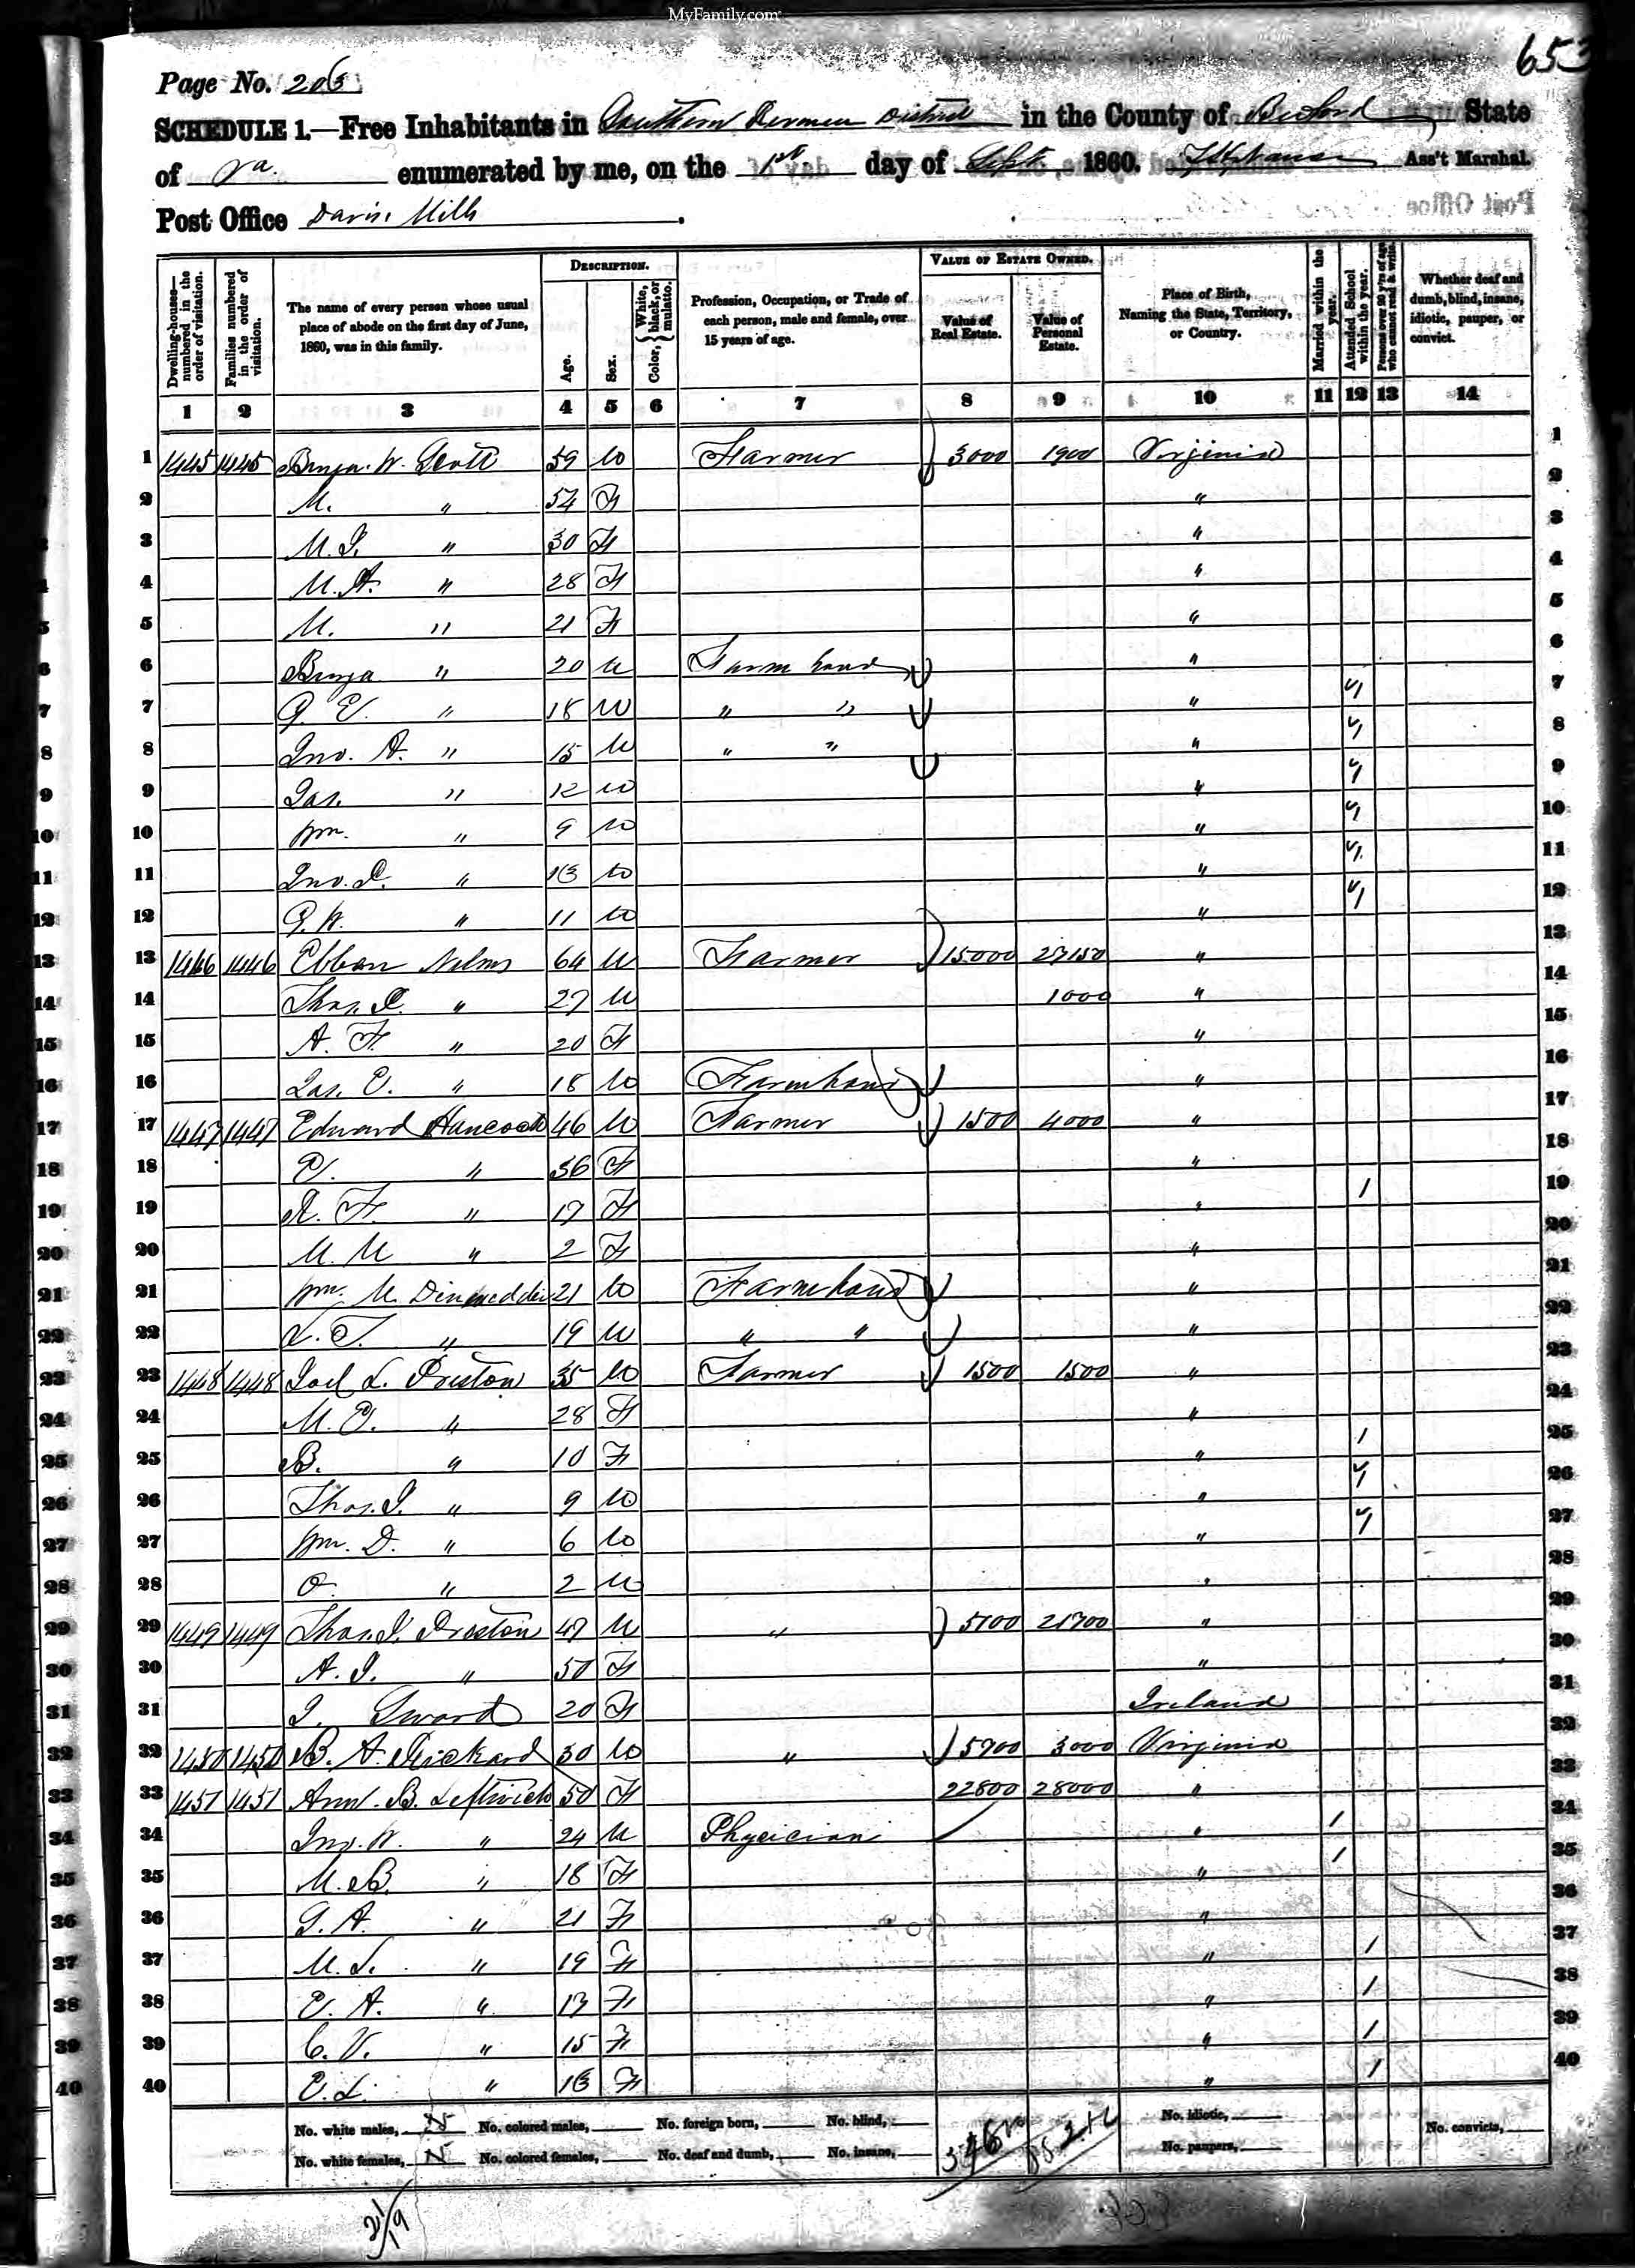 MyFamily.com
653
Page No. 206
SCHEDULE 1.—Free Inhabitants in Southern Division District in the County of Bedford State
of Va. enumerated by me, on the 1st day of Sept. 1860. Ass't Marshal.
Post Office Davis Mills.
DESCRIPTION. VALUE OF ESTATE OWNED.
Dwelling-houses—numbered in the order of visitation.
Families numbered in the order of visitation.
The name of every person whose usual place of abode on the first day of June, 1860, was in this family.
Age.
Sex.
Color, { White, black, or mulatto.
Profession, Occupation, or Trade of each person, male and female, over 15 years of age.
Value of Real Estate.
Value of Personal Estate.
Place of Birth, Naming the State, Territory, or Country.
Married within the year.
Attended School within the year.
Persons over 20 y'rs of age who cannot read & write.
Whether deaf and dumb, blind, insane, idiotic, pauper, or convict.
1 2 3 4 5 6 7 8 9 10 11 12 13 14
1 1445 1445 Benja. W. Scott 59 M Farmer 3000 1900 Virginia 1
2 M. " 54 F " 2
3 M. J. " 30 F " 3
4 M. A. " 28 F " 4
5 M. " 21 F " 5
6 Benja " 20 M Farm hand " 6
7 G. E. " 18 M " " " 1 7
8 Jno. A. " 15 M " " " 1 8
9 Jas. " 12 M " 1 9
10 Wm. " 9 M " 1 10
11 Jno. D. " 13 M " 1 11
12 G. W. " 11 M " 1 12
13 1446 1446 Ebben Nelms 64 M Farmer 15000 27150 " 13
14 Thos. D. " 27 M 1000 " 14
15 A. F. " 20 F " 15
16 Jas. E. " 18 M Farmhand " 16
17 1447 1447 Edward Hancock 46 M Farmer 1500 4000 " 17
18 E. " 36 F " 18
19 R. F. " 17 F " 1 19
20 M. M " 2 F " 20
21 Wm. M. 21 M Farmhand " 21
22 L. T. " 19 M " " " 22
23 1448 1448 Joel L. Preston 35 M Farmer 1500 1500 " 23
24 M. E. " 28 F " 24
25 B. " 10 F " 1 25
26 Thos. J. " 9 M " 1 26
27 Wm. D. " 6 M " 1 27
28 O. " 2 M " 28
29 1449 1449 Thos. J. Preston 47 M " 5100 21700 " 29
30 A. J. " 50 F " 30
31 J. 20 F Ireland 31
32 1450 1450 B. A. 30 M " 5700 3000 Virginia 32
33 1451 1451 Ann. B. Leftwich 50 F 22800 28000 " 33
34 Jno. W. " 24 M Physician " 1 34
35 M. B. " 18 F " 1 35
36 S. A. " 21 F " 36
37 M. L. " 19 F " 1 37
38 E. A. " 17 F " 1 38
39 C. V. " 15 F " 1 39
40 E. L. " 13 F " 1 40
No. white males, No. colored males, No. foreign born, No. blind, No. idiotic,
No. white females, No. colored females, No. deaf and dumb, No. insane, No. paupers, No. convicts,
21/19